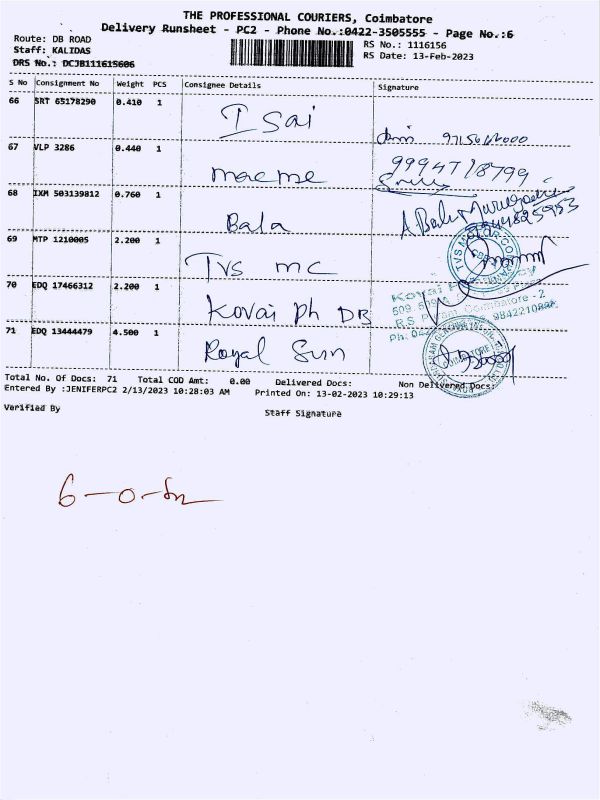 THE PROFESSIONAL COURIERS, Coimbatore
Delivery Runsheet - PC2 - Phone No.:0422-3505555 - Page No.:6
Route: DB ROAD
Staff: KALIDAS
DRS No.: DCJB111615606
RS No.: 1116156
RS Date: 13-Feb-2023
S No Consignment No Weight PCS Consignee Details Signature
66 SRT 65178290 0.410 1 I Sai
67 VLP 3286 0.440 1 macme
9994718799
68 IXM 503139812 0.760 1 Bala
69 MTP 1210005 2.200 1 TVS mc
70 EDQ 17466312 2.200 1 Kovai Ph DB
71 EDQ 13444479 4.500 1 Royal Sun
Total No. Of Docs: 71 Total COD Amt: 0.00 Delivered Docs: Non Delivered Docs:
Entered By :JENIFERPC2 2/13/2023 10:28:03 AM Printed On: 13-02-2023 10:29:13
Verified By Staff Signature